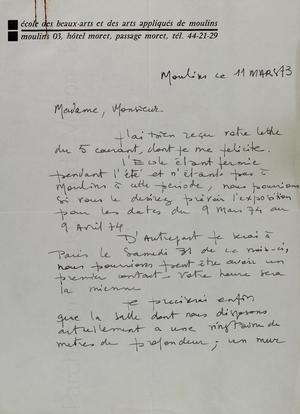 école des beaux-arts et des arts appliqués de moulins
moulins 03, hôtel moret, passage moret, tél. 44-21-29
Moulins le 11 MARS 73
Madame, Monsieur.
J'ai bien reçu votre lettre
du 5 courant, dont je me félicite.
L'Ecole étant fermée
pendant l'été et n'étant pas à
Moulins à cette période, nous pourrions
si vous le desirez prévoir l'exposition
pour les dates du 9 Mars 74 au
9 Avril 74.
D'Autrepart je serai à
Paris le Samedi 31 de ce mois-ci,
nous pourrions peut être avoir un
premier contact. Votre heure sera
la mienne
Je preciserai enfin
que la salle dont nous disposons
actuellement a une vingtaine de
metres de profondeur ; un mur